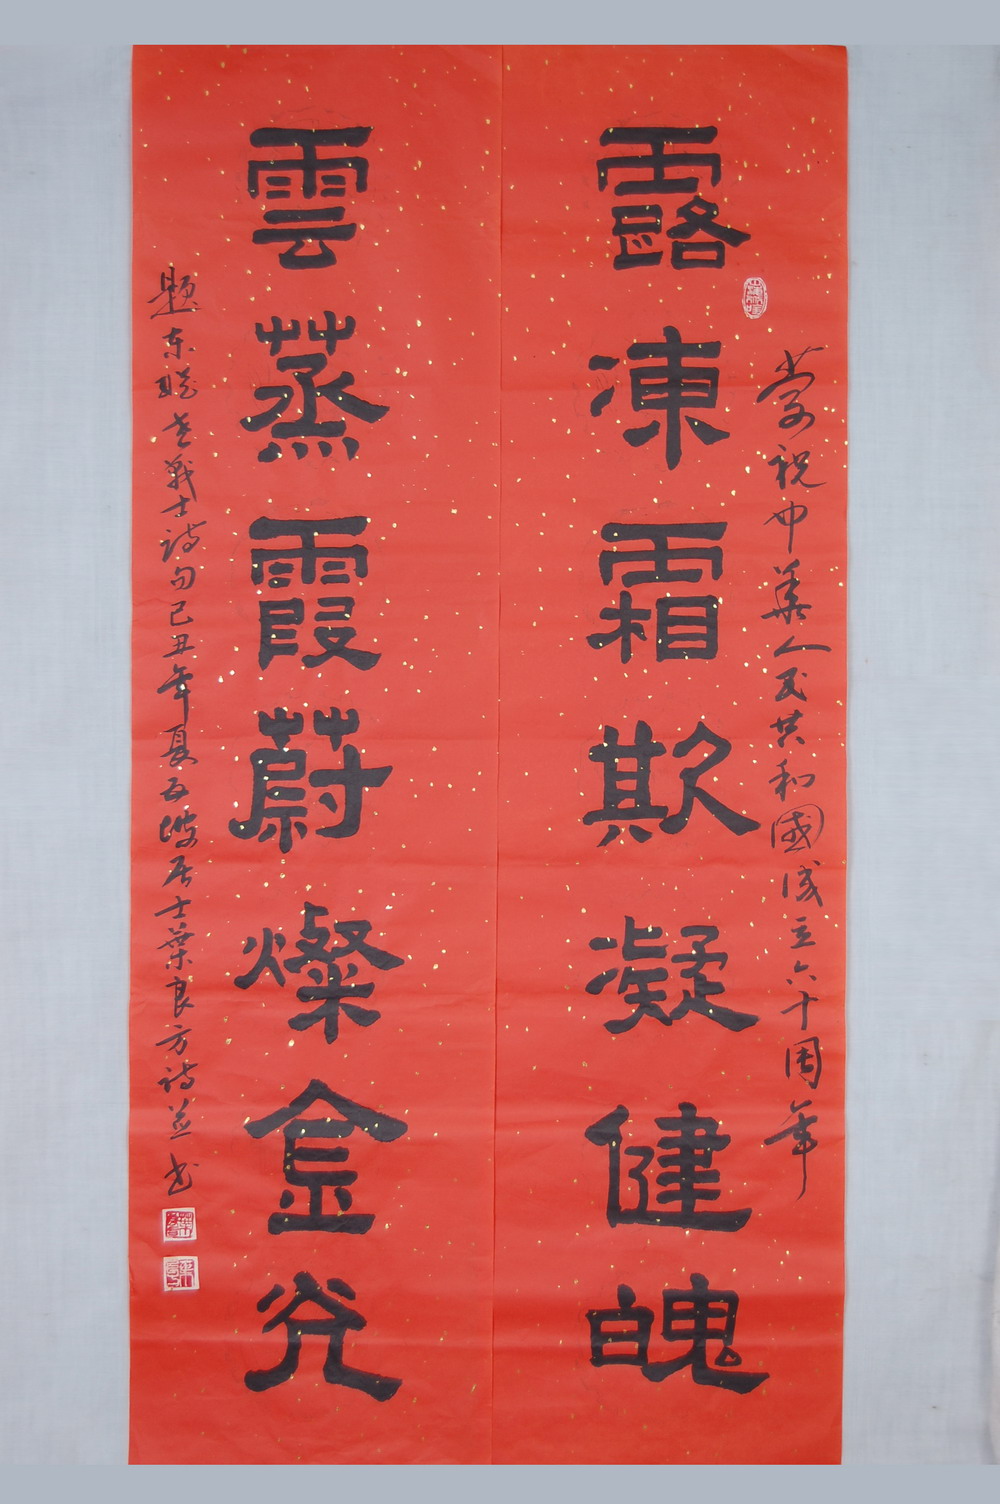 荣祝中華人民共和國成立六十周年
露凍霜欺凝健魄
雲蒸霞蔚燦金光
題東縱老戰士詩句己丑年夏五坡居士葉良方詩並書